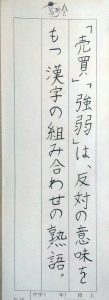 「売買」「強弱」は、反対の意味を
もつ漢字の組み合わせの熟語。